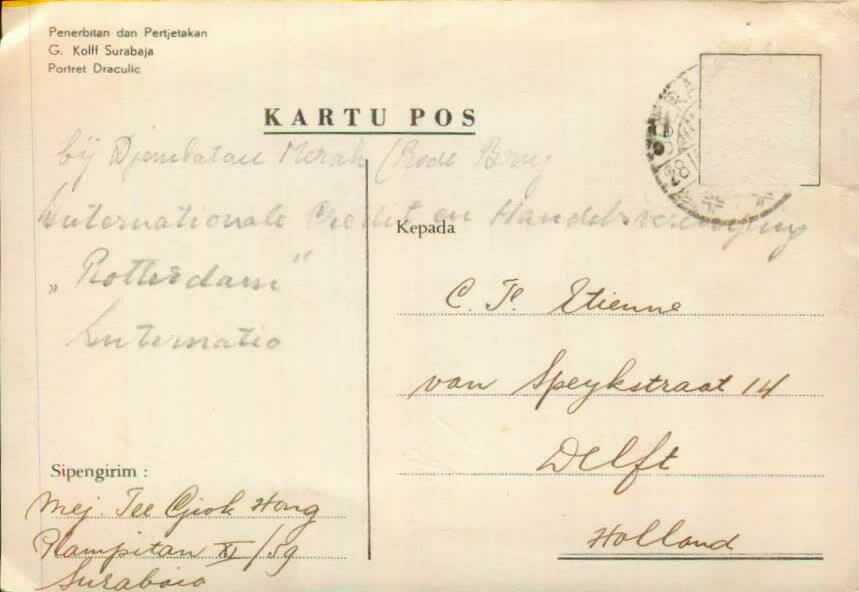 Penerbitan dan Pertjetakan
G. Kolff Surabaja
Portret Draculic
KARTU POS
bij Djembatan Merah (Rode Brug
Internationale Crediet en Handelsvereniging
„Rotterdam"
Internatio
Kepada
C. P. Etienne
van Speykstraat 14
Delft
Holland
Sipengirim :
Mej. Tee Giok Hong
Plampitan XI/59
Surabaia
28